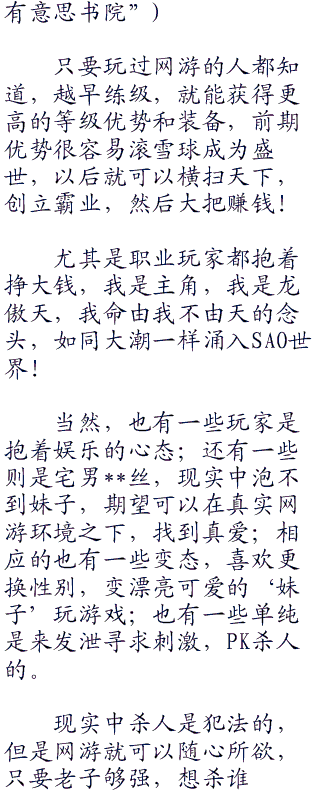 有意思书院”)
只要玩过网游的人都知
道，越早练级，就能获得更
高的等级优势和装备，前期
优势很容易滚雪球成为盛
世，以后就可以横扫天下，
创立霸业，然后大把赚钱！
尤其是职业玩家都抱着
挣大钱，我是主角，我是龙
傲天，我命由我不由天的念
头，如同大潮一样涌入SAO世
界！
当然，也有一些玩家是
抱着娱乐的心态；还有一些
则是宅男**丝，现实中泡不
到妹子，期望可以在真实网
游环境之下，找到真爱；相
应的也有一些变态，喜欢更
换性别，变漂亮可爱的‘妹
子’玩游戏；也有一些单纯
是来发泄寻求刺激，PK杀人
的。
现实中杀人是犯法的，
但是网游就可以随心所欲，
只要老子够强，想杀谁